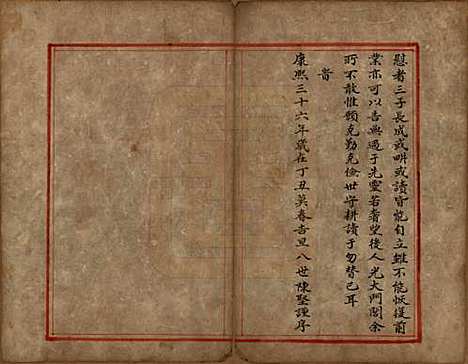 慰者三子長成或畊或讀皆能自立雖不能恢復前
業亦可以告無過于先靈若耆望後人光大門閭余
所不敢惟願克勤克儉世守耕讀于勿替已耳
旹
康熙三十六年歲在丁丑莫春吉旦八世陳堅謹序